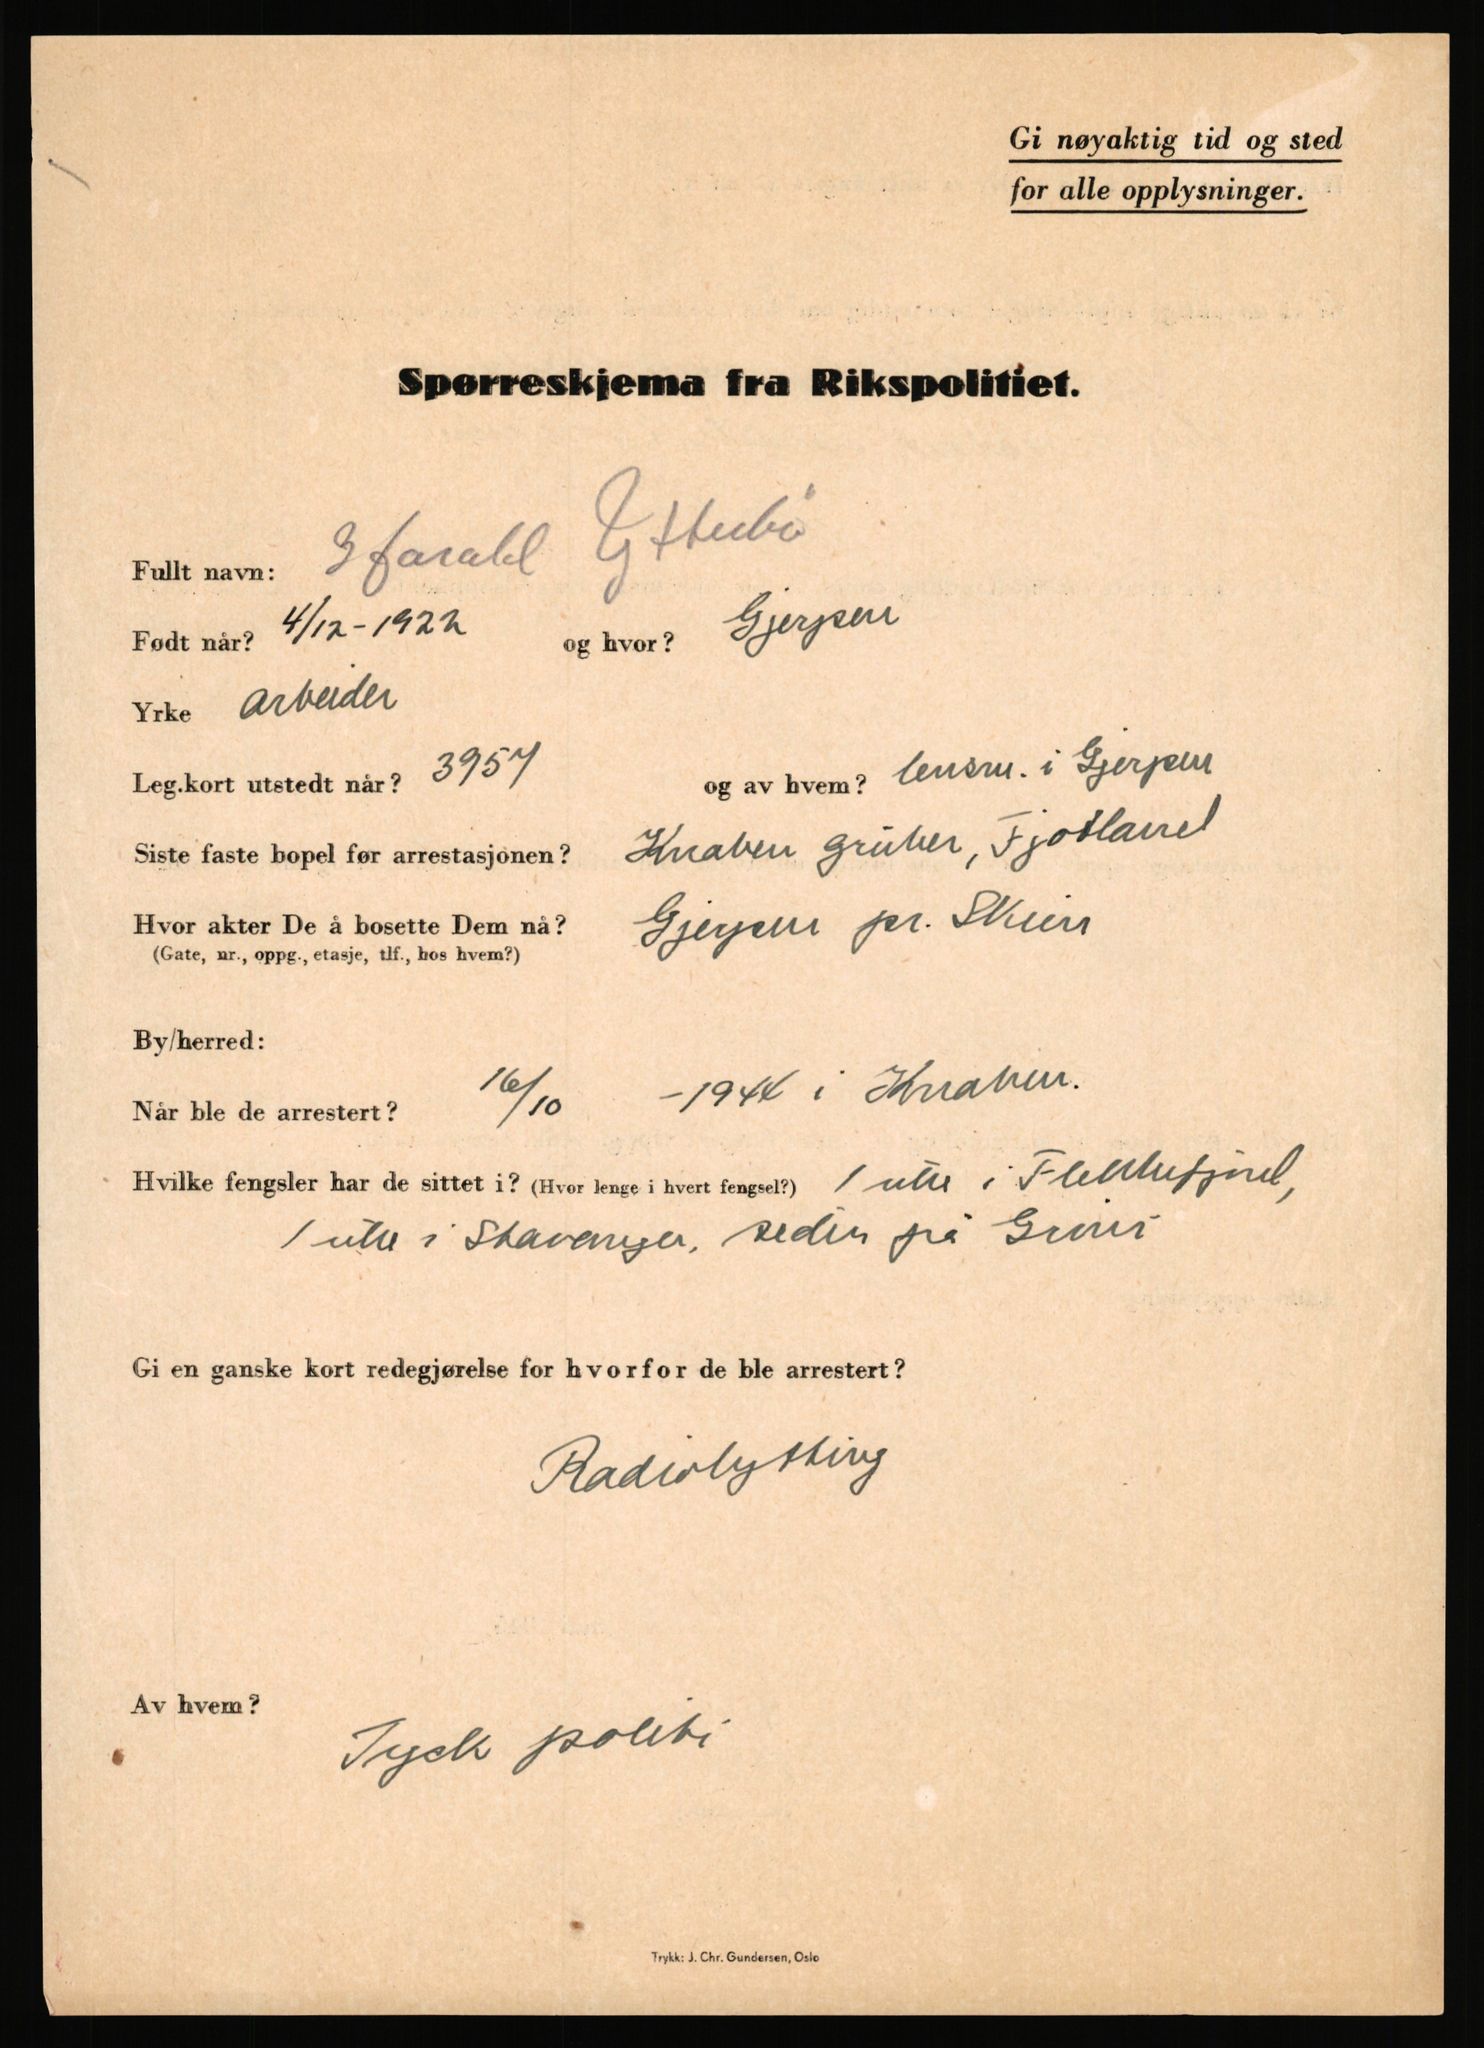 Gi nøyaktig tid og sted
for alle opplysninger.
Spørreskjema fra Rikspolitiet.
Fullt navn: Harald Ytterbö
Født når? 4/12-1922 og hvor? Gjerpen
Yrke arbeider
Leg.kort utstedt når? 3957 og av hvem? lensm. i Gjerpen
Siste faste bopel før arrestasjonen? Knaben grüber, Fjotland
Hvor akter De å bosette Dem nå? Gjerpen pr. Skien
(Gate, nr., oppg., etasje, tlf., hos hvem?)
By/herred:
Når ble de arrestert? 16/10 -1944 i Knaben.
Hvilke fengsler har de sittet i? (Hvor lenge i hvert fengsel?) 1 uke i Flekkefjord,
1 uke i Stavanger, seden på Grini
Gi en ganske kort redegjørelse for hvorfor de ble arrestert?
Radiolytting
Av hvem?
Tysk politi
Trykk: J. Chr. Gundersen, Oslo